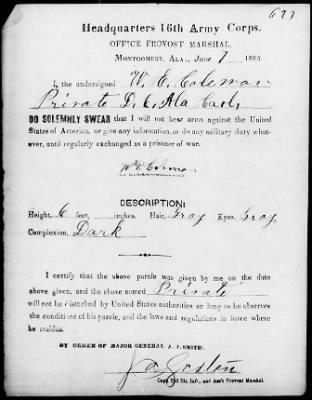 677
Headquarters 16th Army Corps.
OFFICE PROVOST MARSHAL.
MONTGOMERY, ALA., June 7 1865
I, the undersigned W. E. Coleman
Private D. C. Ala Cav.
DO SOLEMNLY SWEAR that I will not bear arms against the United
States of America, or give any information, or do any military duty what-
ever, until regularly exchanged as a prisoner of war.
DESCRIPTION:
Height, 6 feet, inches. Hair, Gray Eyes, Gray
Complexion, Dark
I certify that the above parole was given by me on the date
above given, and the above named Private
will not be disturbed by United States authorities so long as he observes
the conditions of his parole, and the laws and regulations in force where
he resides.
BY ORDER OF MAJOR GENERAL A. J. SMITH.
Capt. Ills. Inft., and Ass't Provost Marshal.